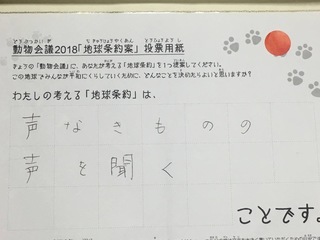 動物会議2018「地球条約案」投票用紙
きょうの「動物会議」に、あなたが考える「地球条約」を1つ提案してください。
この地球でみんなが平和にくらしていくために、どんなことを決めたらよいと思いますか?
わたしの考える「地球条約」は、
声なきものの
声を聞く
ですこと